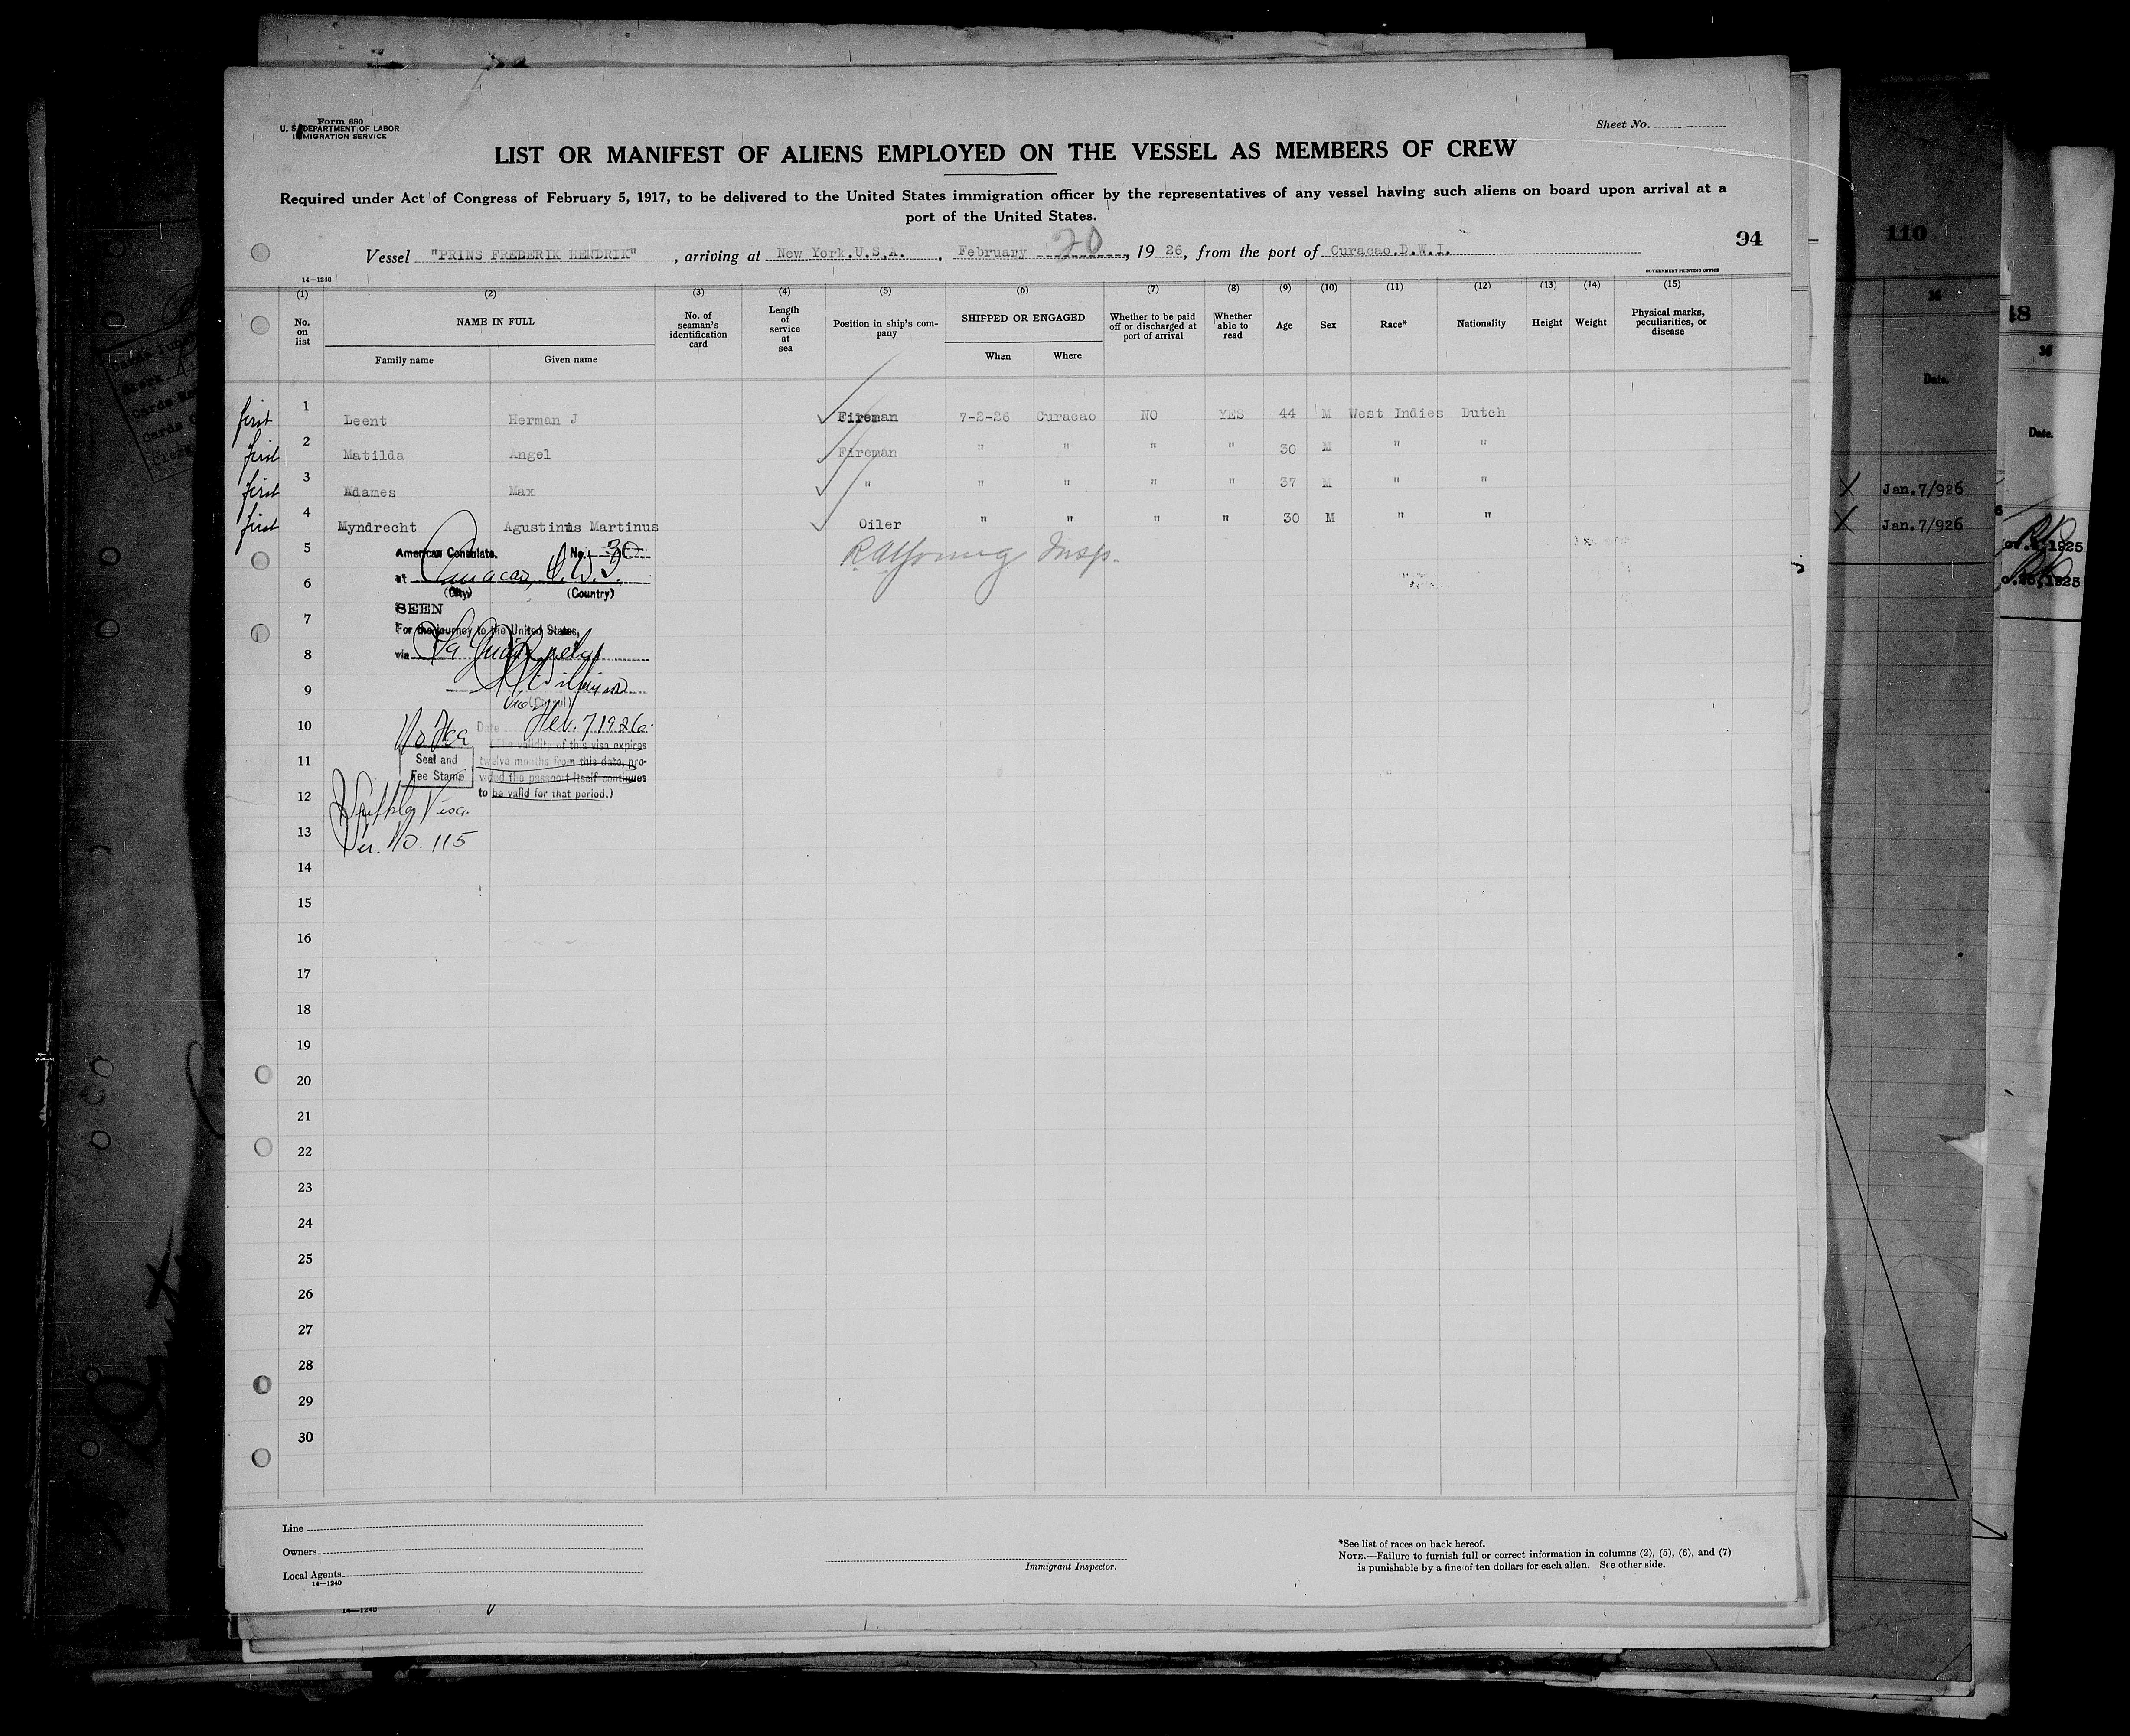 Form 680
U. S. DEPARTMENT OF LABOR
IMMIGRATION SERVICE
Sheet No.
LIST OR MANIFEST OF ALIENS EMPLOYED ON THE VESSEL AS MEMBERS OF CREW
Required under Act of Congress of February 5, 1917, to be delivered to the United States immigration officer by the representatives of any vessel having such aliens on board upon arrival at a
port of the United States.
94
Vessel "PRINS FREDERIK HENDRIK", arriving at New York.U.S.A., February 20, 1926, from the port of Curacao.D.W.I.
14—1240
GOVERNMENT PRINTING OFFICE
(1) (2) (3) (4) (5) (6) (7) (8) (9) (10) (11) (12) (13) (14) (15)
No. on list NAME IN FULL No. of seaman's identification card Length of service at sea Position in ship's company SHIPPED OR ENGAGED Whether to be paid off or discharged at port of arrival Whether able to read Age Sex Race* Nationality Height Weight Physical marks, peculiarities, or disease
Family name Given name When Where
first 1 Leent Herman J Fireman 7-2-26 Curacao NO YES 44 M West Indies Dutch
first 2 Matilda Angel Fireman " " " " 30 M " "
first 3 Adames Max " " " " " 37 M " "
first 4 Myndrecht Agustinus Martinus Oiler " " " " 30 M " "
5 American Consulate. No. 30
Insp.
at Curacao, D.W.I.
6 (City) (Country)
SEEN
7 For the journey to the United States,
8 via
9
Vice (Consul)
10 No Fee Date Feb. 7 1926
(The validity of this visa expires
11 Seal and twelve months from this date, pro-
Fee Stamp vided the passport itself continues
12 to be valid for that period.)
Visa.
13 Ser. No. 115
14
15
16
17
18
19
20
21
22
23
24
25
26
27
28
29
30
Line
Owners
Local Agents
14—1240
Immigrant Inspector.
*See list of races on back hereof.
NOTE.—Failure to furnish full or correct information in columns (2), (5), (6), and (7)
is punishable by a fine of ten dollars for each alien. See other side.
14—1240
110
36
Date.
Jan.7/926
Jan.7/926
18
36
Date.